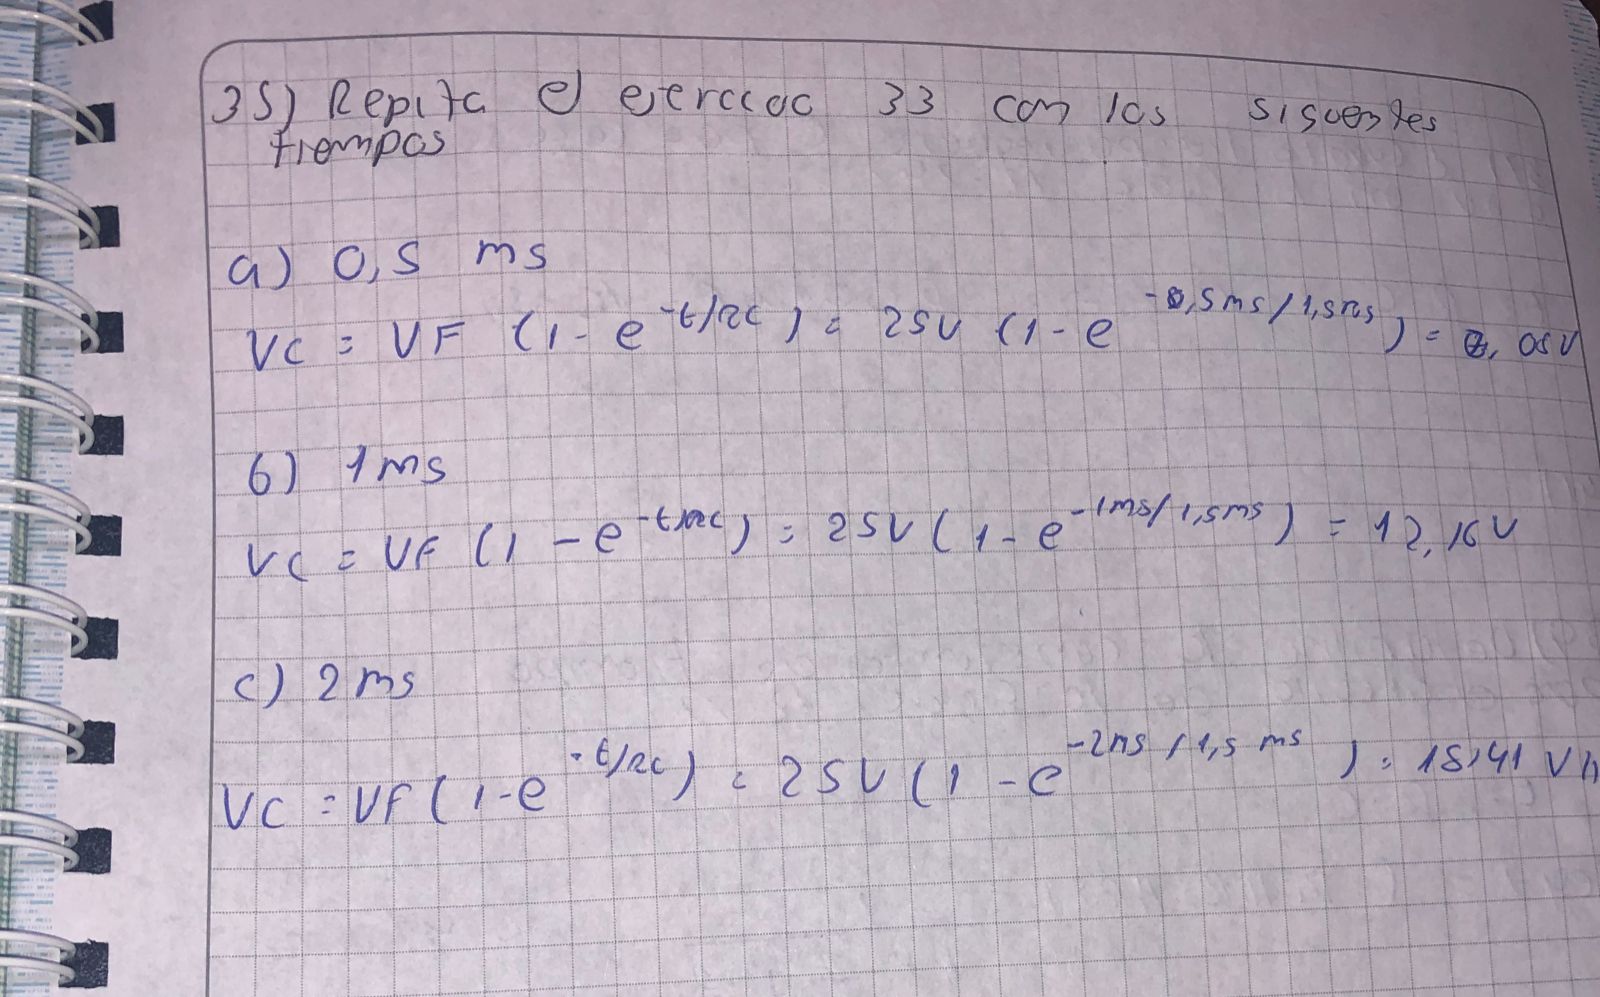 35) Repita el ejerccoc 33 con los siguentes
tiempos
a) 0,5 ms
VC = VF (1 - e^-t/RC) = 25V (1 - e^-0,5ms/1,5ms) = , 05V
b) 1ms
VC = VF (1 - e^-t/RC) = 25V (1 - e^-1ms/1,5ms) = 12,16V
c) 2ms
VC = VF (1 - e^-t/RC) = 25V (1 - e^-2ms/1,5ms) = 18,41 V